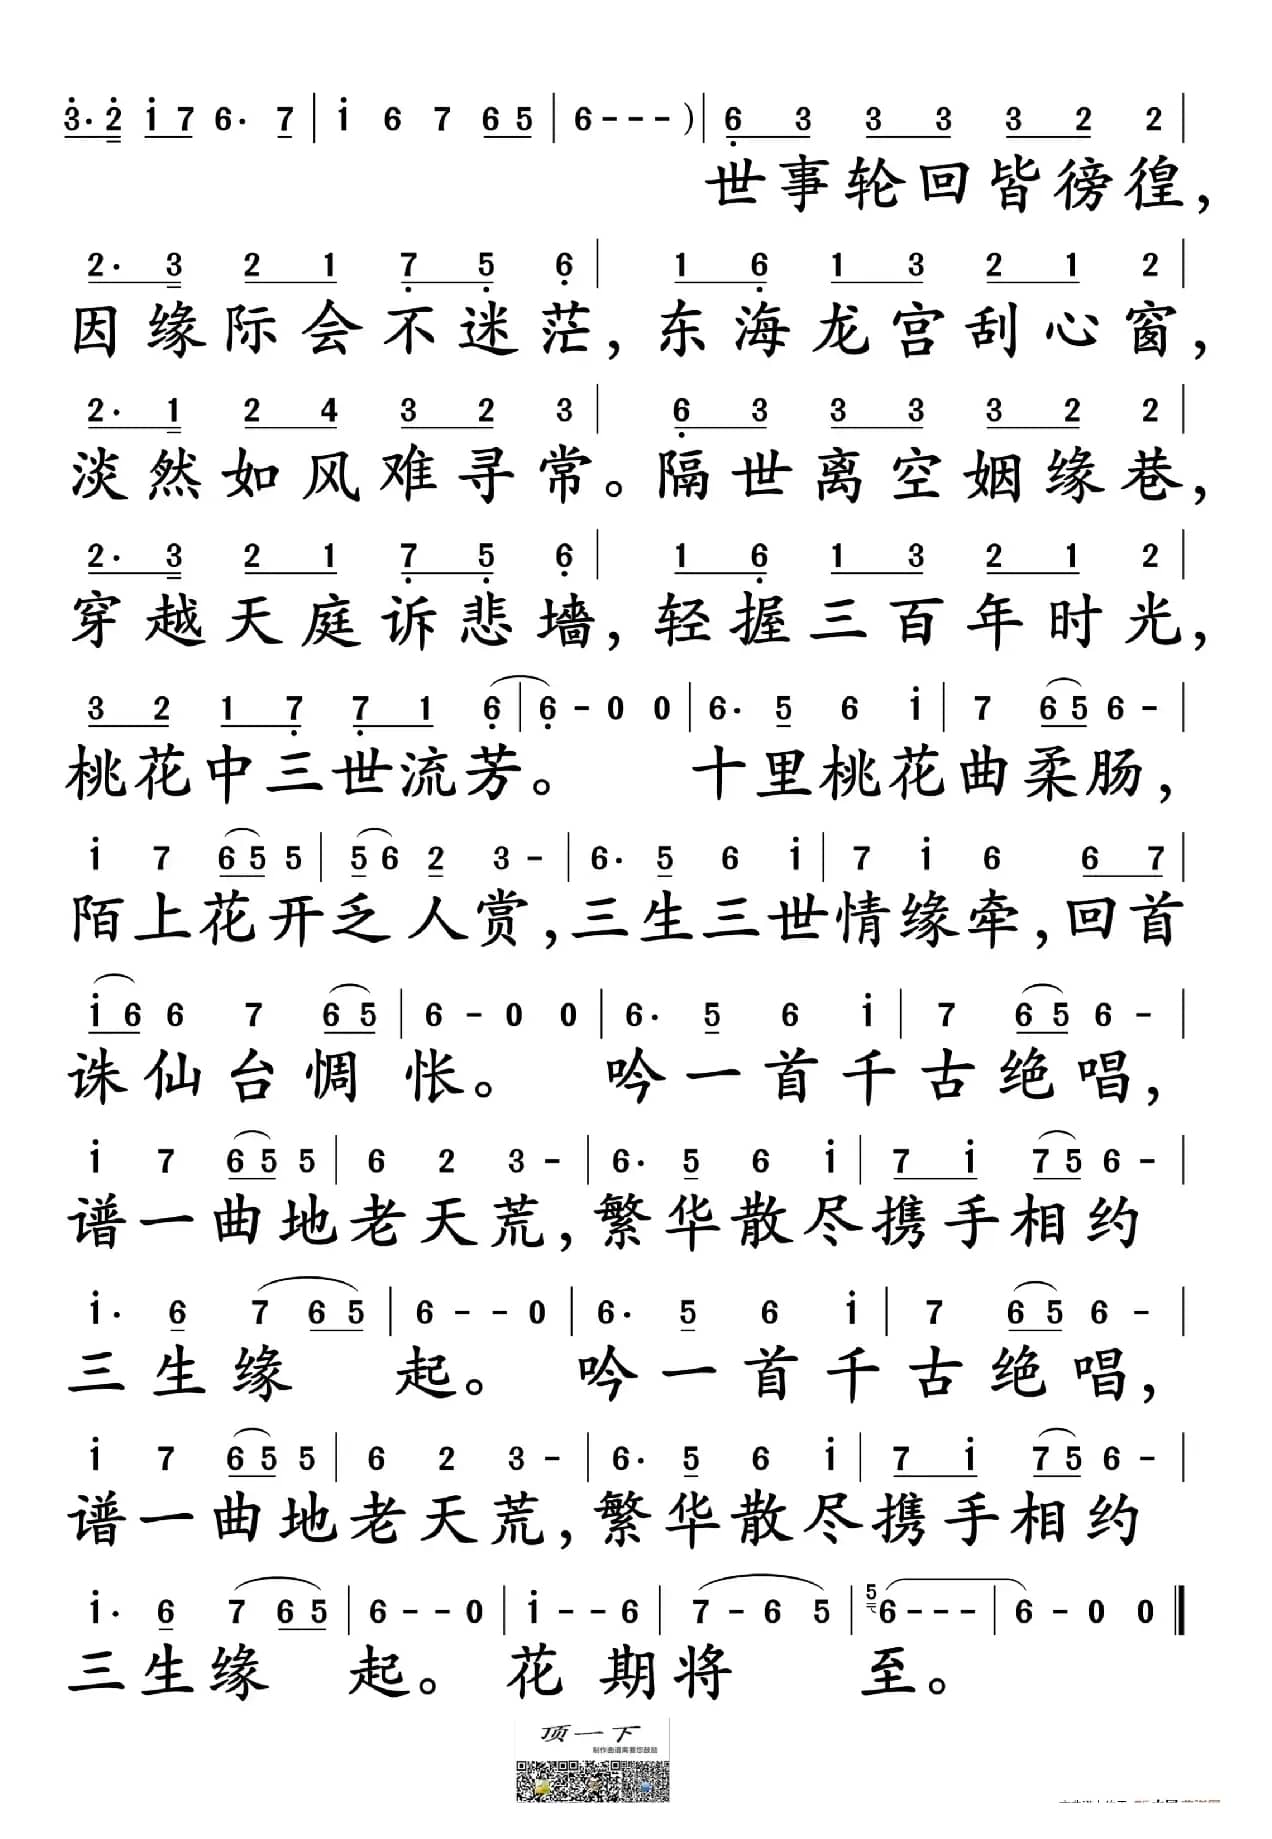 3· 2 1 7 6· 7 | 1 6 7 6 5 | 6 - - - ) | 6 3 3 3 3 2 2 |
世事轮回皆徬徨，
2· 3 2 1 7 5 6 | 1 6 1 3 2 1 2 |
因缘际会不迷茫，东海龙宫刮心窗，
2· 1 2 4 3 2 3 | 6 3 3 3 3 2 2 |
淡然如风难寻常。隔世离空姻缘巷，
2· 3 2 1 7 5 6 | 1 6 1 3 2 1 2 |
穿越天庭诉悲墙，轻握三百年时光，
3 2 1 7 7 1 6 | 6 - 0 0 | 6· 5 6 1 | 7 6 5 6 - |
桃花中三世流芳。 十里桃花曲柔肠，
1 7 6 5 5 | 5 6 2 3 - | 6· 5 6 1 | 7 1 6 6 7 |
陌上花开乏人赏，三生三世情缘牵，回首
1 6 6 7 6 5 | 6 - 0 0 | 6· 5 6 1 | 7 6 5 6 - |
诛仙台惆 怅。 吟一首千古绝唱，
1 7 6 5 5 | 6 2 3 - | 6· 5 6 1 | 7 1 7 5 6 - |
谱一曲地老天荒，繁华散尽携手相约
1· 6 7 6 5 | 6 - - 0 | 6· 5 6 1 | 7 6 5 6 - |
三生缘 起。 吟一首千古绝唱，
1 7 6 5 5 | 6 2 3 - | 6· 5 6 1 | 7 1 7 5 6 - |
谱一曲地老天荒，繁华散尽携手相约
1· 6 7 6 5 | 6 - - 0 | 1 - - 6 | 7 - 6 5 | 5 6 - - - | 6 - 0 0 ‖
三生缘 起。 花 期将 至。
顶一下
制作曲谱需要您鼓励